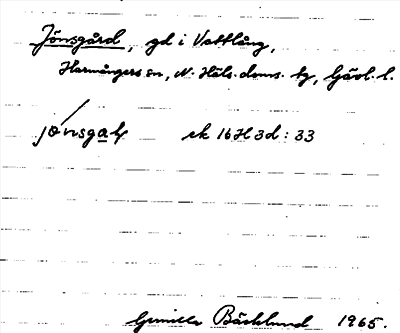 Jönsgård, gd i Vattlång,
Harmångers sn, N. Häls. doms. tg, Gävl. l.
ek 16H 3d : 33
Gunilla Bäcklund 1965.